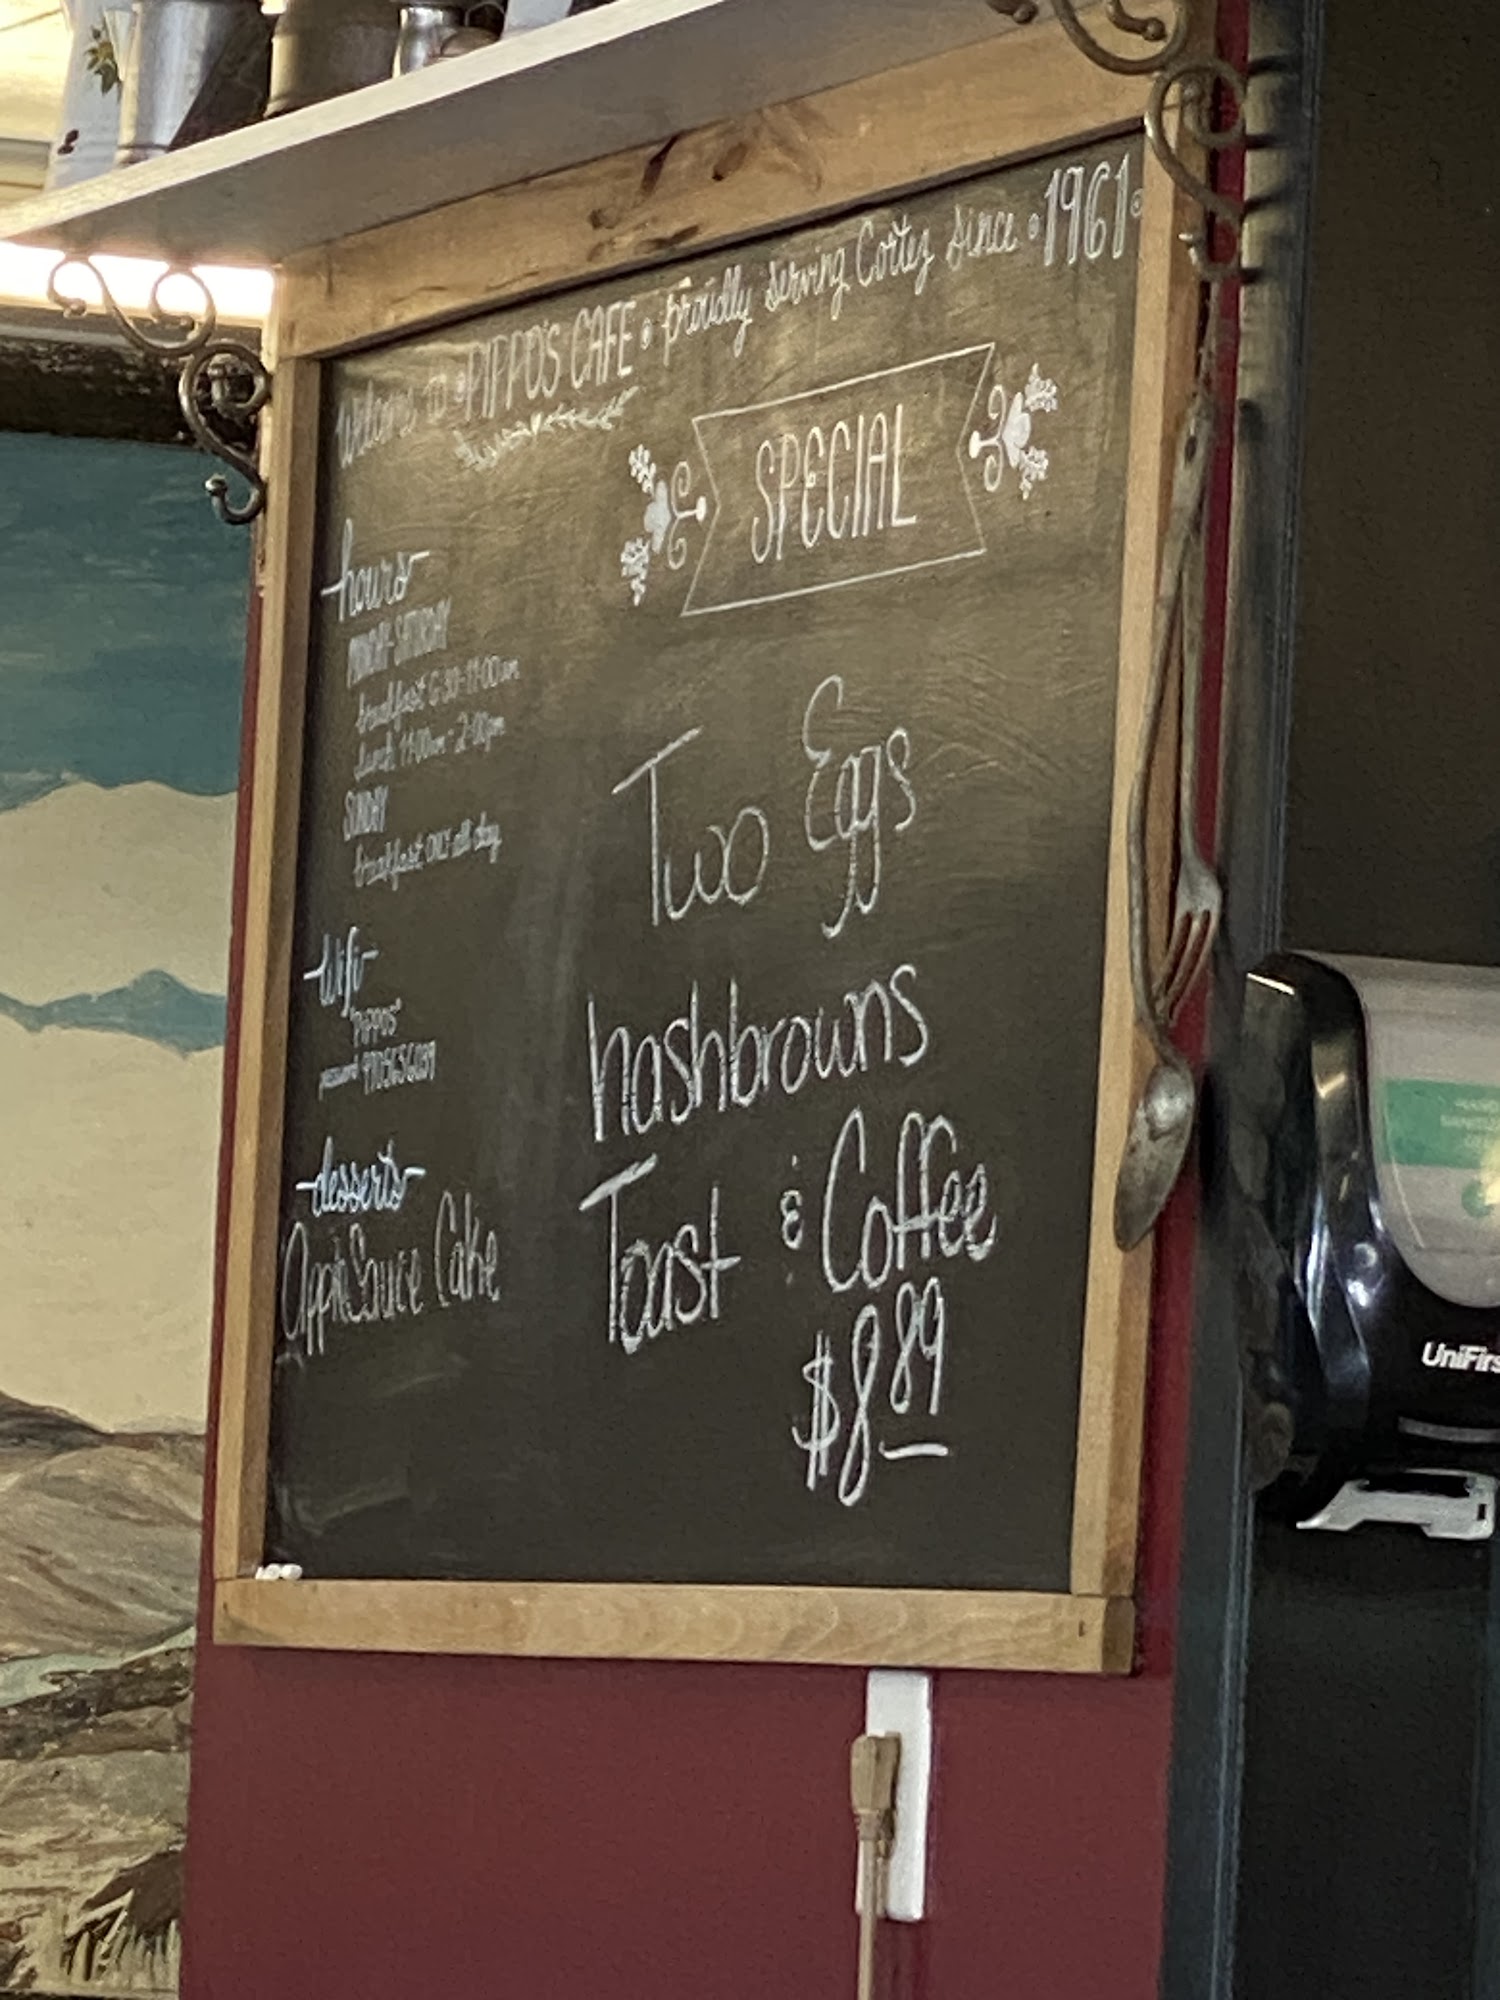 welcome to • PIPPO'S CAFE • proudly serving Cortez since • 1961 •
SPECIAL
Two Eggs
hashbrowns
Toast & Coffee
$8.89
hours
MONDAY-SATURDAY
breakfast 6:30-11:00am
lunch 11:00am-2:00pm
SUNDAY
breakfast ONLY all day
wifi
"PIPPOS"
password
desserts
AppleSauce Cake